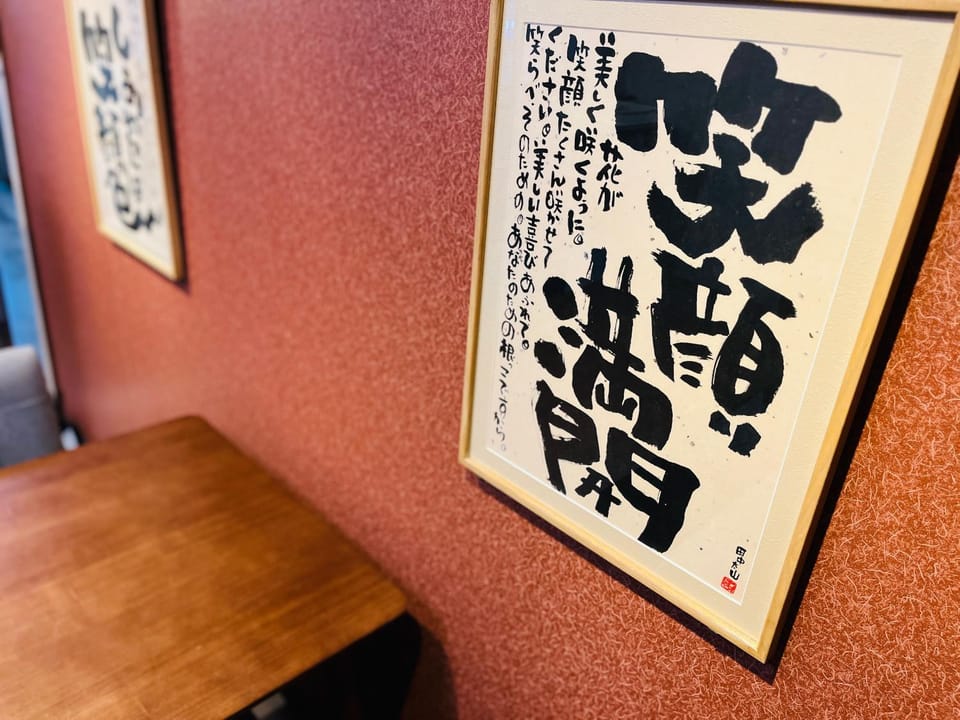 笑顔
満開
花が
美しく咲くように。
笑顔たくさん咲かせて
ください。美しい喜びあふれて。
笑らべそのための。あなたのための根っこですから。
田中太山